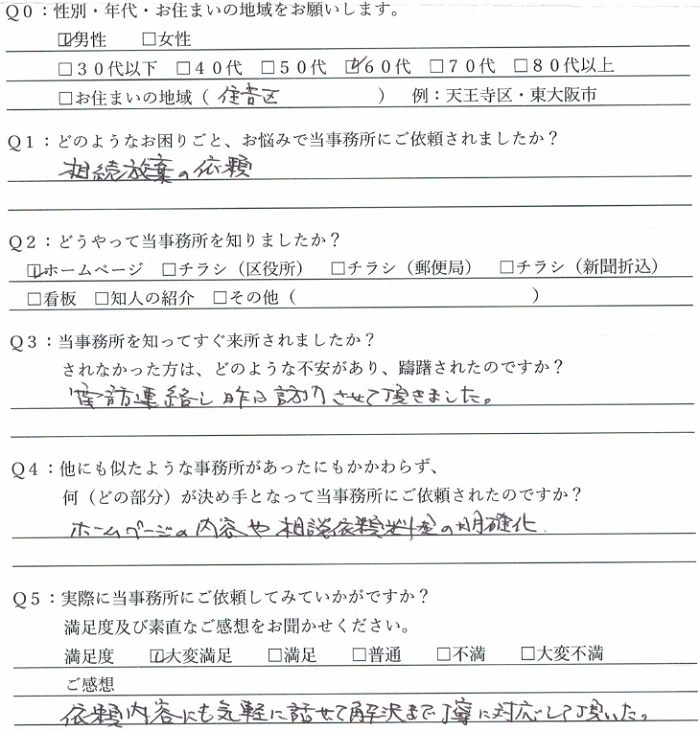 Q0：性別・年代・お住まいの地域をお願いします。
☑男性 □女性
□30代以下 □40代 □50代 ☑60代 □70代 □80代以上
□お住まいの地域（ 住吉区 ） 例：天王寺区・東大阪市
Q1：どのようなお困りごと、お悩みで当事務所にご依頼されましたか？
相続放棄の依頼
Q2：どうやって当事務所を知りましたか？
☑ホームページ □チラシ（区役所） □チラシ（郵便局） □チラシ（新聞折込）
□看板 □知人の紹介 □その他（ ）
Q3：当事務所を知ってすぐ来所されましたか？
されなかった方は、どのような不安があり、躊躇されたのですか？
連絡し 訪問させて頂きました。
Q4：他にも似たような事務所があったにもかかわらず、
何（どの部分）が決め手となって当事務所にご依頼されたのですか？
ホームページの内容や相談依頼料金の明確化
Q5：実際に当事務所にご依頼してみていかがですか？
満足度及び素直なご感想をお聞かせください。
満足度 ☑大変満足 □満足 □普通 □不満 □大変不満
ご感想
依頼内容にも気軽に話せて解決まで丁寧に対応して頂いた。